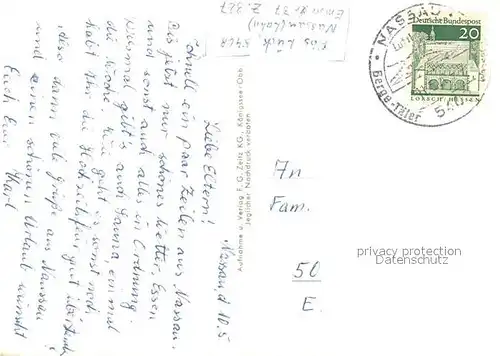 Abs. Lück, 5408
Nassau (Lahn)
Emser Str. 37 Z. 327
NASSAU
Berge-Täler
54
Deutsche Bundespost
20
LORSCH/HESSEN
Nassau, d. 10.5
Liebe Eltern!
Schnell ein paar Zeilen aus Nassau.
Bis jetzt nur schönes Wetter. Essen
und sonst auch alles in Ordnung.
Diesmal gibt's auch Sauna, einmal
die Woche. Wie geht es sonst noch,
habt Ihr die Hochzeitsfeier gut überstanden
also dann viele Grüße aus Nassau
und einen schönen Urlaub wünscht
Euch Euer
Karl
Aufnahme u. Verlag F. G. Zeitz KG., Königssee-Obb.
Jeglicher Nachdruck verboten
An
Fam.
50
E.
privacy protection
Datenschutz